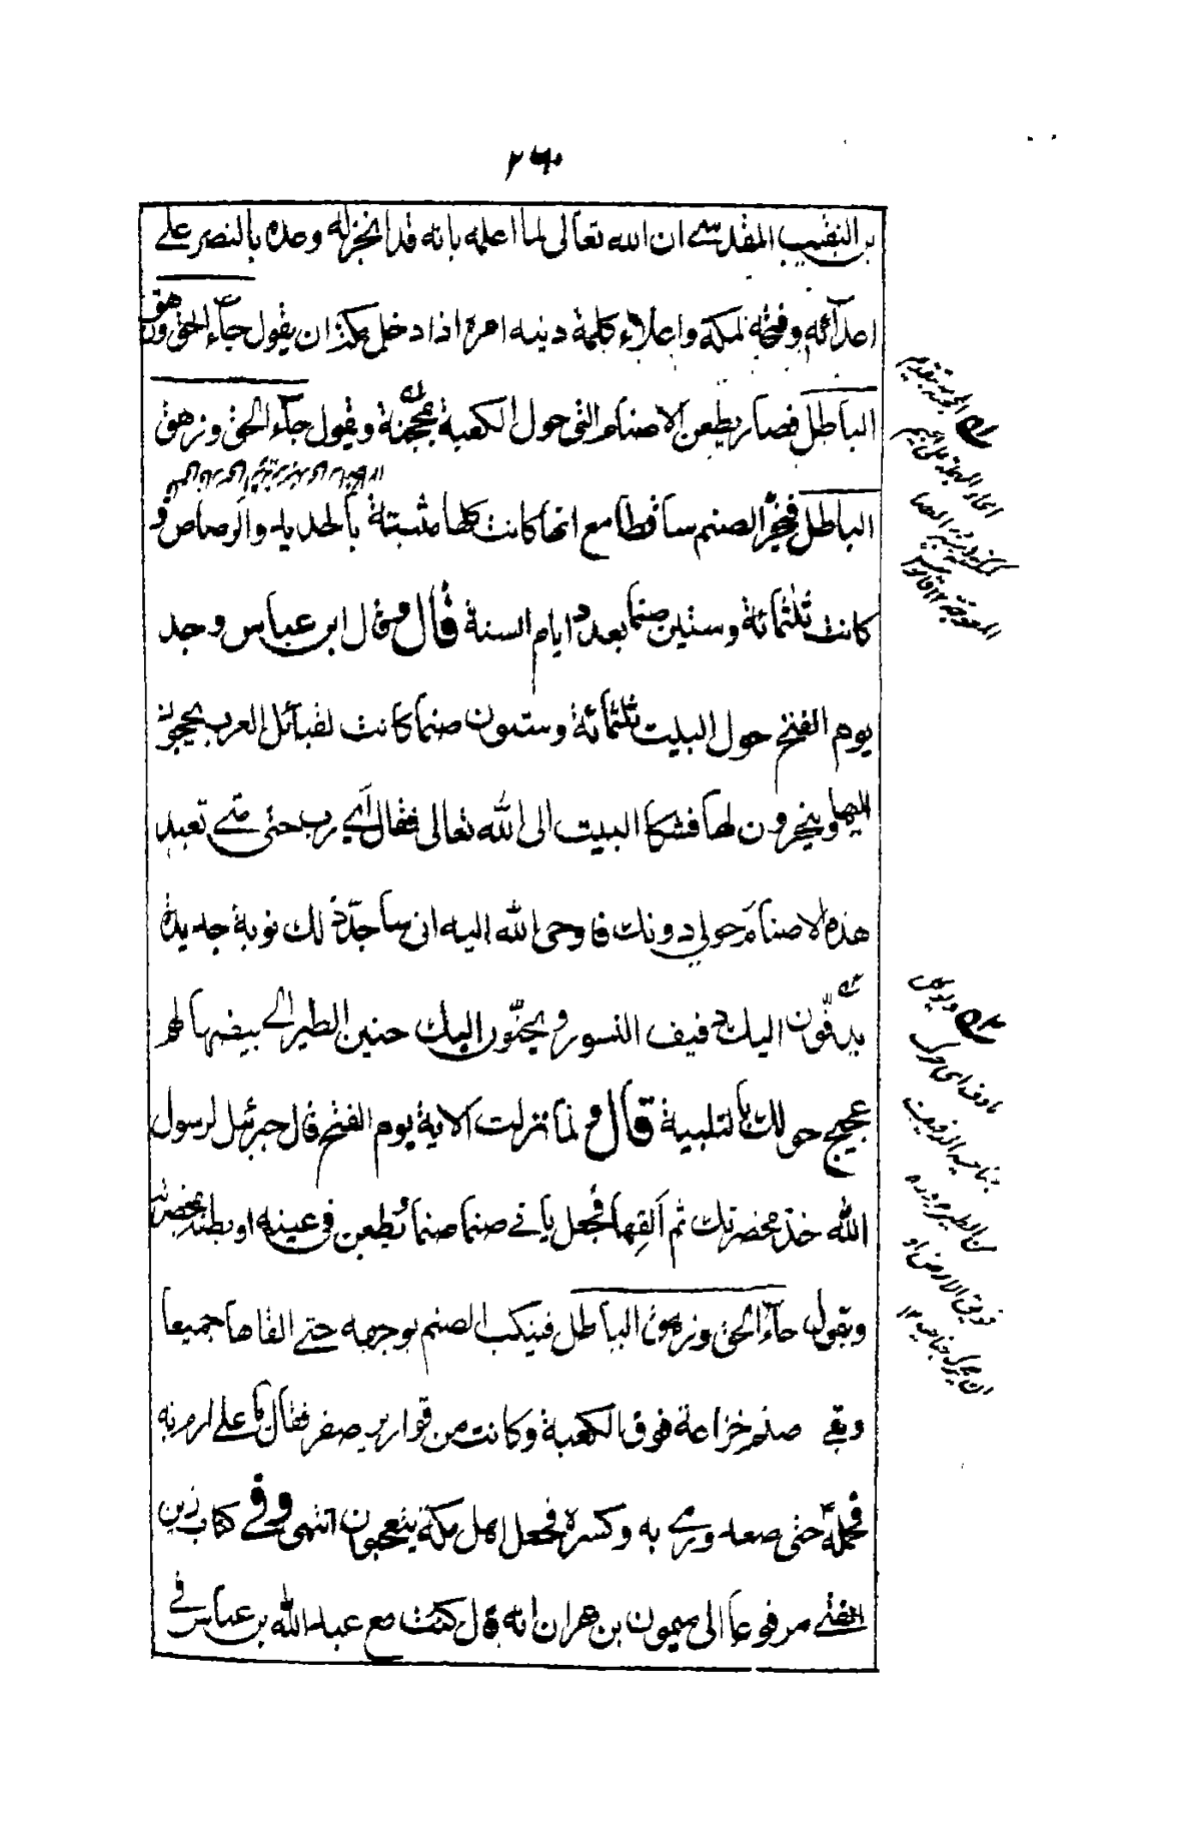 ٢٦٠
بن النقيب المقدسے ان الله تعالى لما اعلمه بانه قد انجز له وعده بالنصر على
اعدآئه وفتحه لمكة واعلاء كلمة دينه امره اذا دخل مكة ان يقول جآء الحق وزهق
الباطل فصار يطعن الاصنام التى حول الكعبة بمحجنة ويقول جآء الحق وزهق
الباطل فيخر الصنم ساقطا مع انها كانت كلها مثبتة بالحديد والرصاص و
كانت ثلثمائة وستين صنما بعدد ايام السنة قال وقال ابن عباس وجد
يوم الفتح حول البيت ثلثمائة وستون صنما كانت لقبائل العرب يحجون
اليها وينحرون لها فشكا البيت الى الله تعالى فقال اے رب حتى متے تعبد
هذه الاصنام حولي دونك فاوحى الله اليه انى ساجدد لك نوبة جديدة
يدفّون اليك دفيف النسور ويحنّون اليك حنين الطير الى بيضها لهم
عجيج حولك بالتلبية قال ولما نزلت الاية يوم الفتح قال جبرئيل لرسول
الله خذ مخصرتك ثم القها فجعل ياتے صنما صنما ويطعن فى عينه او بطنه بمخصرته
ويقول جآء الحق وزهق الباطل فينكب الصنم لوجهه حتے القاها جميعا
وبقے صنم خزاعة فوق الكعبة وكانت من قوارير صفر فقال يا على ارم به
فحمله حتى صعد ورمے به وكسره فجعل اهل مكة يتعجبون انتهى وفے كتاب زين
الفتى مرفوعا الى ميمون بن مهران انه قال كنت مع عبد الله بن عباس فے